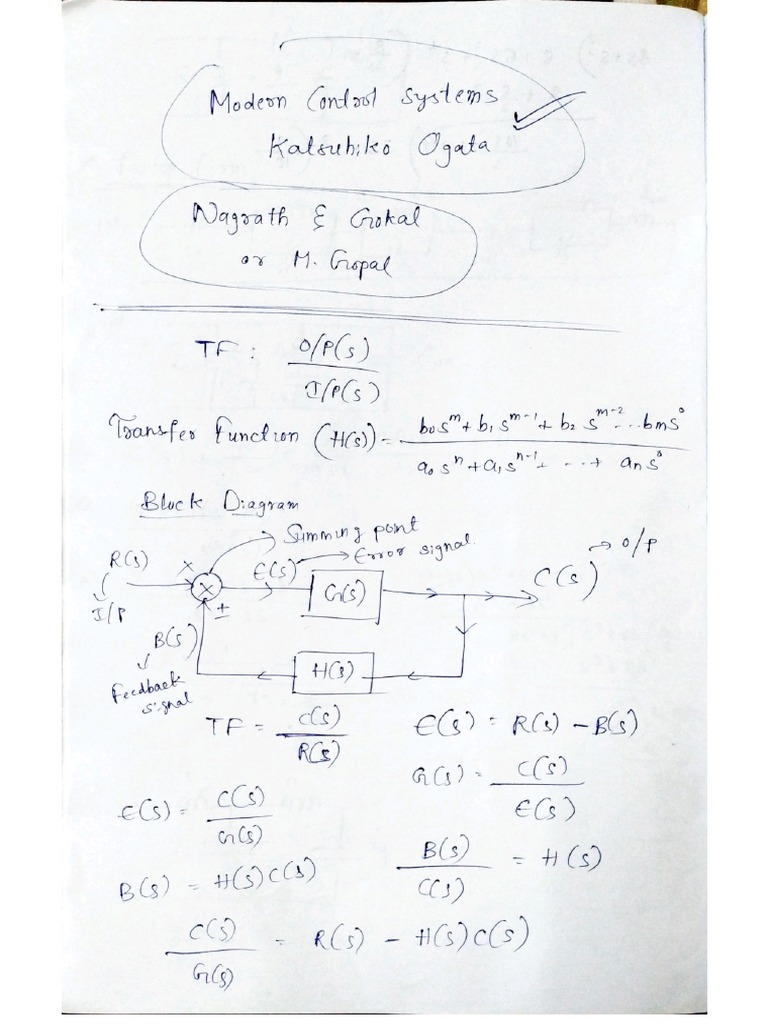 Modern Control Systems
Katsuhiko Ogata
Nagrath & Gokal
or M. Gopal
TF : O/P(s) / I/P(s)
Transfer Function (H(s)) = b₀s^m + b₁s^(m-1) + b₂s^(m-2) ... bms⁰ / a₀s^n + a₁s^(n-1) + ... + ans⁰
Block Diagram
Summing point
Error signal
R(s) × E(s) G(s) C(s) → O/P
×
I/P
±
B(s)
H(s)
Feedback
signal
TF = C(s) / R(s) E(s) = R(s) - B(s)
G(s) = C(s) / E(s)
E(s) = C(s) / G(s)
B(s) = H(s)C(s) B(s) / C(s) = H(s)
C(s) / G(s) = R(s) - H(s)C(s)